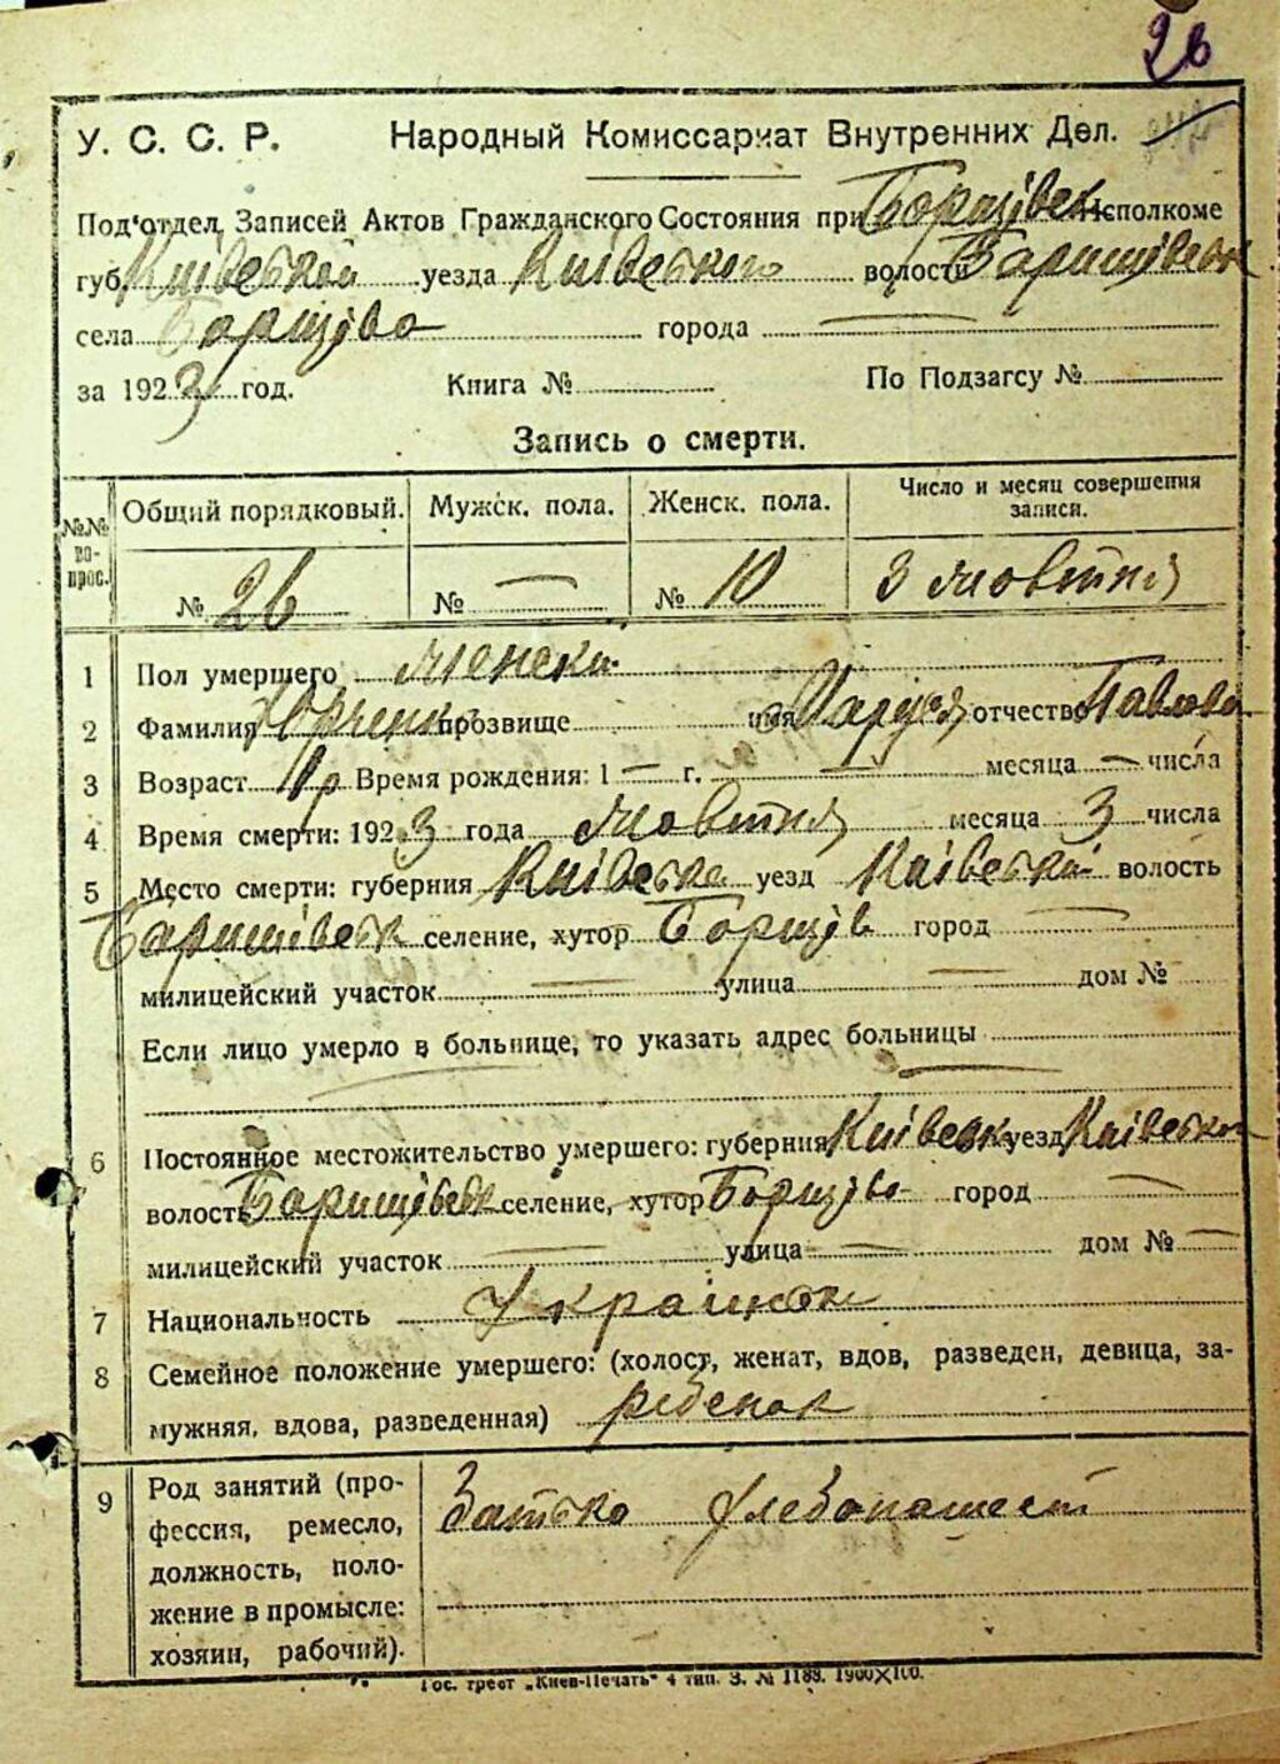 26
У. С. С. Р. Народный Комиссариат Внутренних Дел.
Под'отдел Записей Актов Гражданского Состояния при Борщівск. Исполкоме
губ. Київськой уезда Київського волости Баришівськ
села Борщіва города —
за 1923 год. Книга № По Подзагсу №
Запись о смерти.
№№ вопрос. Общий порядковый. Мужск. пола. Женск. пола. Число и месяц совершения записи.
№ 26 № — № 10 3 жовтня
1 Пол умершего женск.
2 Фамилия Юрченко прозвище имя Маруся отчество Павлова
3 Возраст 1 р Время рождения: 1 — г. — месяца — числа
4 Время смерти: 1923 года жовтня месяца 3 числа
5 Место смерти: губерния Київська уезд Київськ волость
Баришівськ селение, хутор Борщів город —
милицейский участок — улица — дом №
Если лицо умерло в больнице, то указать адрес больницы
—
6 Постоянное местожительство умершего: губерния Київськ уезд Київськ
волость Баришівськ селение, хутор Борщів город —
милицейский участок — улица — дом № —
7 Национальность Україн
8 Семейное положение умершего: (холост, женат, вдов, разведен, девица, за-
мужняя, вдова, разведенная) ребенок
9 Род занятий (про- Батько хлебопашест
фессия, ремесло,
должность, поло-
жение в промысле:
хозяин, рабочий).
Гос. трест „Киев-Печать" 4 тип. З. № 1188. 1900×100.